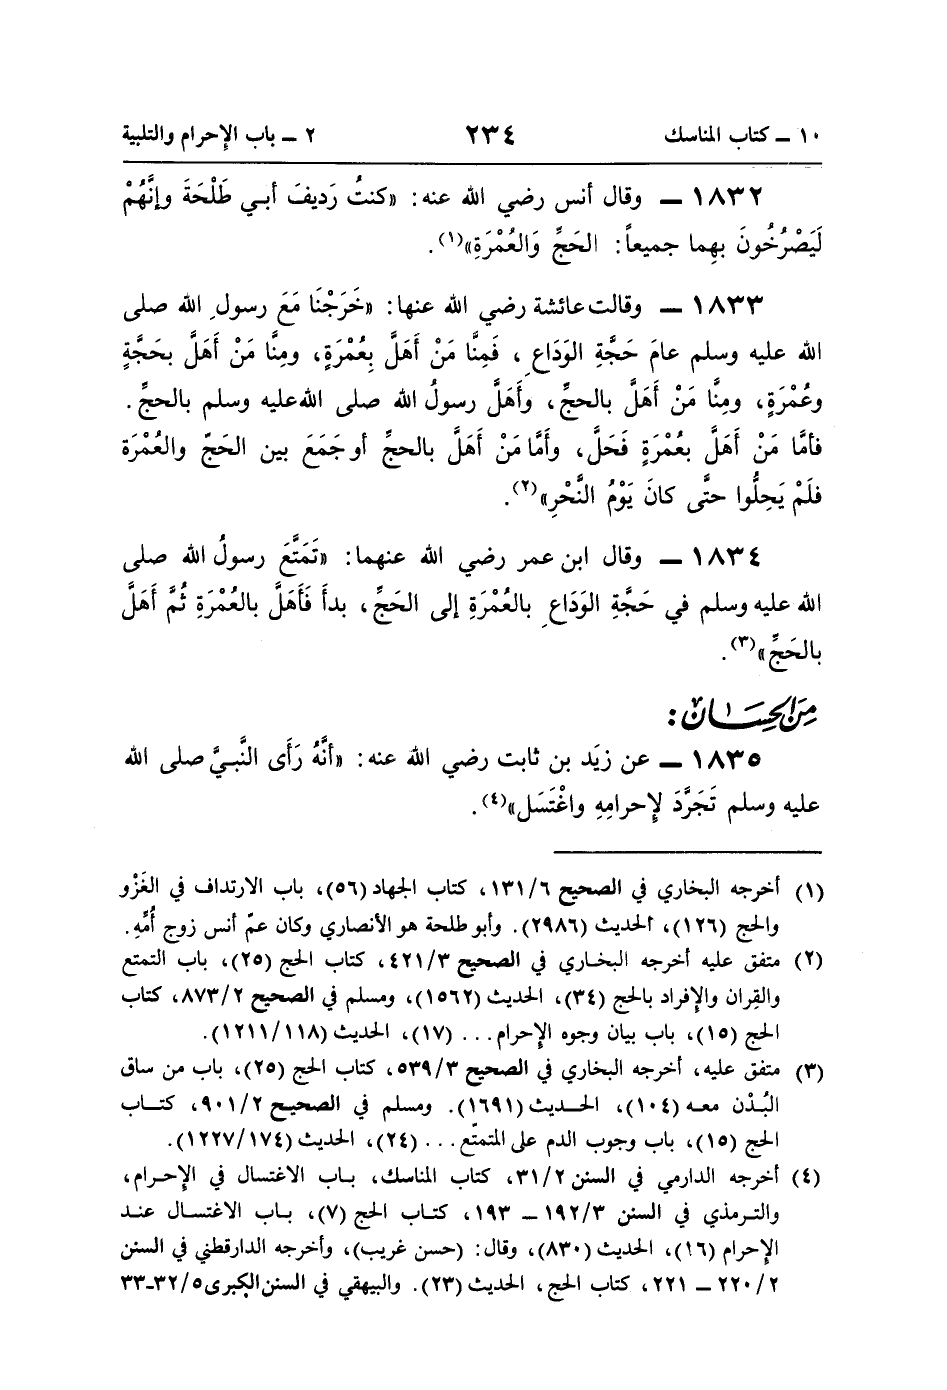 ١٠ ــ كتاب المناسك ٢٣٤ ٢ ــ باب الإحرام والتلبية
١٨٣٢ ــ وقال أنس رضي الله عنه: «كنتُ رَديفَ أبـي طَلْحَةَ وإنَّهُمْ
لَيَصْرُخُونَ بهِما جميعاً: الحَجِّ وَالعُمْرَةِ»(١).
١٨٣٣ ــ وقالت عائشة رضي الله عنها: «خَرَجْنَا مَعَ رسولِ الله صلى
الله عليه وسلم عامَ حَجَّةِ الوَدَاعِ، فَمِنَّا مَنْ أَهَلَّ بِعُمْرَةٍ، ومِنَّا مَنْ أَهَلَّ بحَجَّةٍ
وعُمْرَةٍ، ومِنَّا مَنْ أَهَلَّ بالحجِّ، وأَهَلَّ رسولُ الله صلى الله عليه وسلم بالحجِّ.
فأمَّا مَنْ أَهَلَّ بعُمْرَةٍ فَحَلَّ، وأمَّا مَنْ أَهَلَّ بالحجِّ أو جَمَعَ بين الحَجِّ والعُمْرَة
فلَمْ يَحِلُّوا حتَّى كانَ يَوْمُ النَّحْرِ»(٢).
١٨٣٤ ــ وقال ابن عمر رضي الله عنهما: «تَمَتَّعَ رسولُ الله صلى
الله عليه وسلم في حَجَّةِ الوَدَاعِ بالعُمْرَةِ إلى الحَجِّ، بدأَ فَأَهَلَّ بالعُمْرَةِ ثُمَّ أَهَلَّ
بالحَجِّ»(٣).
مِنَ الحِسَان:
١٨٣٥ ــ عن زيَد بن ثابت رضي الله عنه: «أنَّهُ رَأَى النَّبـيَّ صلى الله
عليه وسلم تَجَرَّدَ لإِحرامِهِ واغْتَسَل»(٤).
(١) أخرجه البخاري في الصحيح ١٣١/٦، كتاب الجهاد (٥٦)، باب الارتداف في الغَزْو
والحج (١٢٦)، الحديث (٢٩٨٦). وأبو طلحة هو الأنصاري وكان عمّ أنس زوج أُمِّهِ.
(٢) متفق عليه أخرجه البخاري في الصحيح ٤٢١/٣، كتاب الحج (٢٥)، باب التمتع
والقِران والإِفراد بالحج (٣٤)، الحديث (١٥٦٢)، ومسلم في الصحيح ٨٧٣/٢، كتاب
الحج (١٥)، باب بيان وجوه الإحرام... (١٧)، الحديث (١٢١١/١١٨).
(٣) متفق عليه، أخرجه البخاري في الصحيح ٥٣٩/٣، كتاب الحج (٢٥)، باب من ساق
البُدْن معه (١٠٤)، الحديث (١٦٩١). ومسلم في الصحيح ٩٠١/٢، كتاب
الحج (١٥)، باب وجوب الدم على المتمتّع... (٢٤)، الحديث (١٢٢٧/١٧٤).
(٤) أخرجه الدارمي في السنن ٣١/٢، كتاب المناسك، باب الاغتسال في الإحرام،
والترمذي في السنن ١٩٢/٣ ــ ١٩٣، كتاب الحج (٧)، باب الاغتسال عند
الإحرام (١٦)، الحديث (٨٣٠)، وقال: (حسن غريب)، وأخرجه الدارقطني في السنن
٢٢٠/٢ ــ ٢٢١، كتاب الحج، الحديث (٢٣). والبيهقي في السنن الكبرى ٣٢/٥ـ٣٣